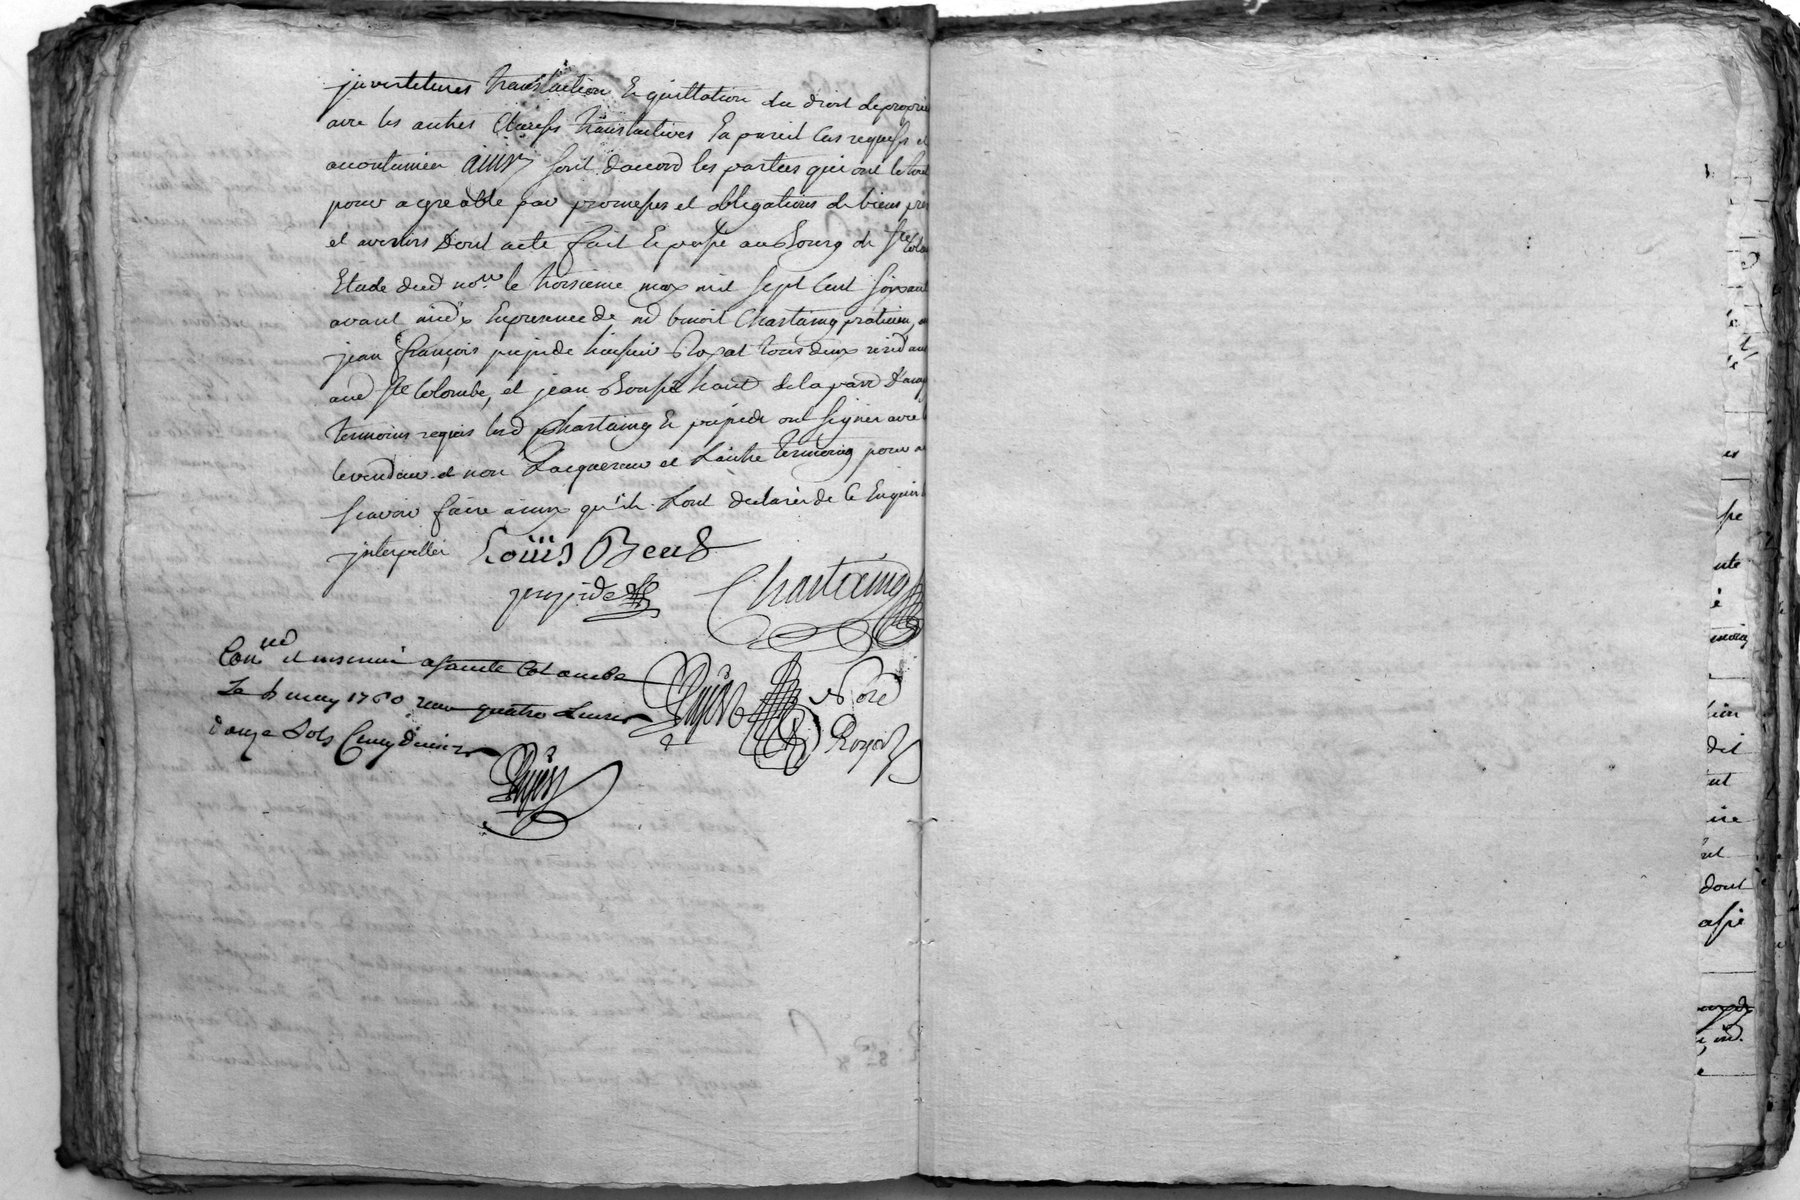 jnvestitures translation & quittation du droit de proprie
avec les autres Clauses translatives En pareil Cas requises et
accoutumées ainsy sont d'accord les parties qui ont le tout
pour agreable par promesses et obligations de biens pre
et avenirs Dont acte fait & passé au Bourg de Ste Colom
Etude dud nore le troisieme may mil sept Cent soixant
avant midy En presence de md benoit Chartaing praticien, et
jean françois prejude huissier Royal tous deux residant
aud Ste Colombe, et jean hant de la parr
temoins requis lesd Chartaing & prejude ont signer avec
le vendeur et non L'acquereur et L'autre temoing pour ne
scavoir faire ainsy qu'ils L'ont declarer de Ce Enquis
jnterpeller Loüis Beuf
prejude Chartaing
Conlle et insinué a sainte Colombe
Le 6 may 1760 recu quatre Livres
douze Sols Cinq deniers
Nore
Royal
spe
ute
é
emoing
dit
ut
ire
dont
assé